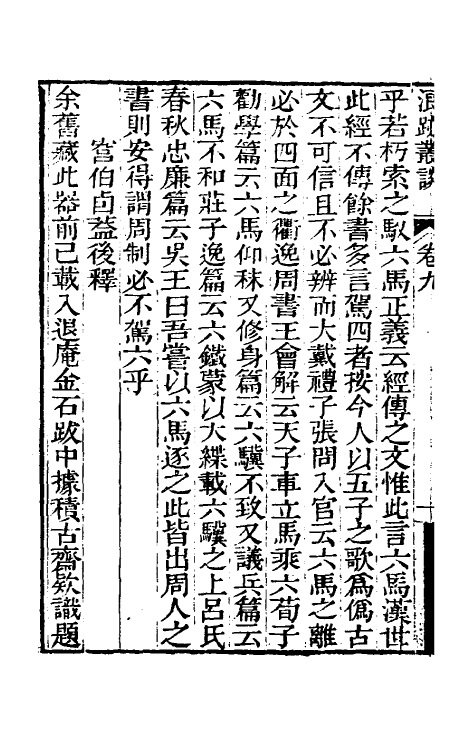 浪跡叢談 卷九
乎若朽索之馭六馬正義云經傳之文惟此言六馬漢世
此經不傳餘書多言駕四者按今人以五子之歌為偽古
文不可信且不必辨而大戴禮子張問入官云六馬之離
必於四面之衢逸周書王會解云天子車立馬乘六荀子
勸學篇云六馬仰秣又修身篇云六驥不致又議兵篇云
六馬不和莊子逸篇云六鐵蒙以大緤載六驥之上呂氏
春秋忠廉篇云吳王曰吾嘗以六馬逐之此皆出周人之
書則安得謂周制必不駕六乎
宮伯卣蓋後釋
余舊藏此器前已載入退庵金石跋中據積古齋欵識題